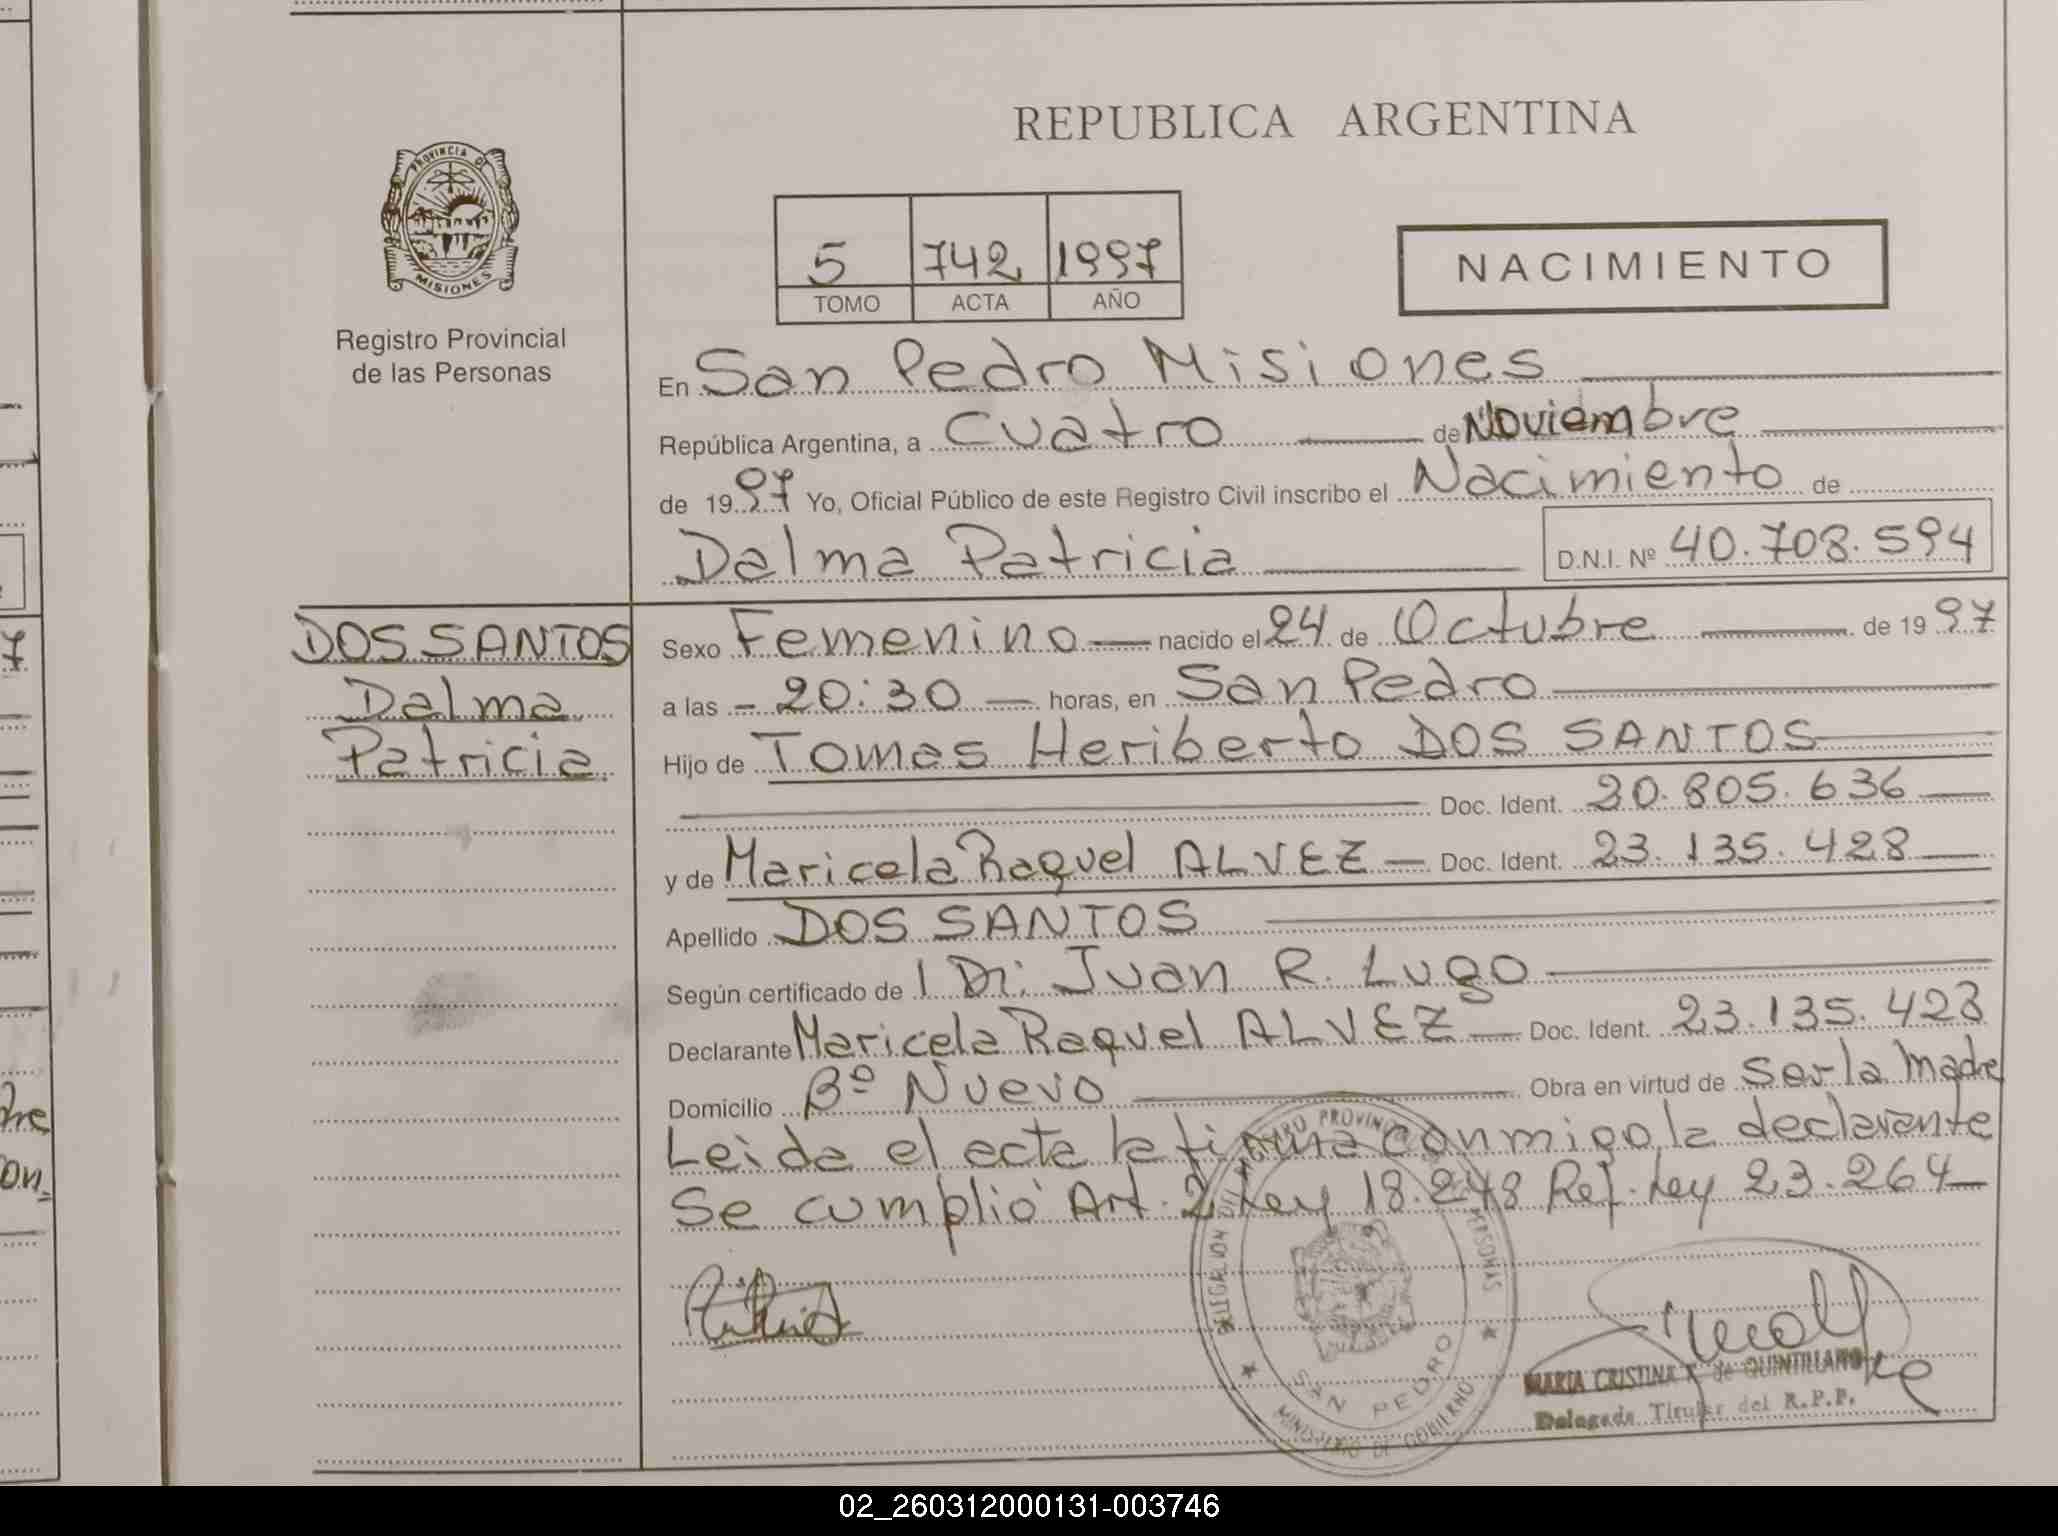 REPUBLICA ARGENTINA
PROVINCIA DE
MISIONES
Registro Provincial
de las Personas
5 742 1997
TOMO ACTA AÑO
NACIMIENTO
En San Pedro Misiones
República Argentina, a Cuatro de Noviembre
de 1997 Yo, Oficial Público de este Registro Civil inscribo el Nacimiento de
Dalma Patricia D.N.I. Nº 40.708.594
DOS SANTOS
Dalma
Patricia
Sexo Femenino nacido el 24 de Octubre de 1997
a las 20:30 horas, en San Pedro
Hijo de Tomas Heriberto DOS SANTOS
Doc. Ident. 20.805.636
y de Maricela Raquel ALVEZ Doc. Ident. 23.135.428
Apellido DOS SANTOS
Según certificado de Dr: Juan R. Lugo
Declarante Maricela Raquel ALVEZ Doc. Ident. 23.135.428
Domicilio Bº Nuevo Obra en virtud de Ser la Madre
Leida el acta la firma conmigo la declarante
Se cumplió Art. 2 Ley 18.248 Ref. Ley 23.264
PERSONAS
SAN PEDRO
MINISTERIO DE GOBIERNO
MARIA CRISTINA de QUINTILLANO
Delegada Titular del R.P.P.
02_260312000131-003746